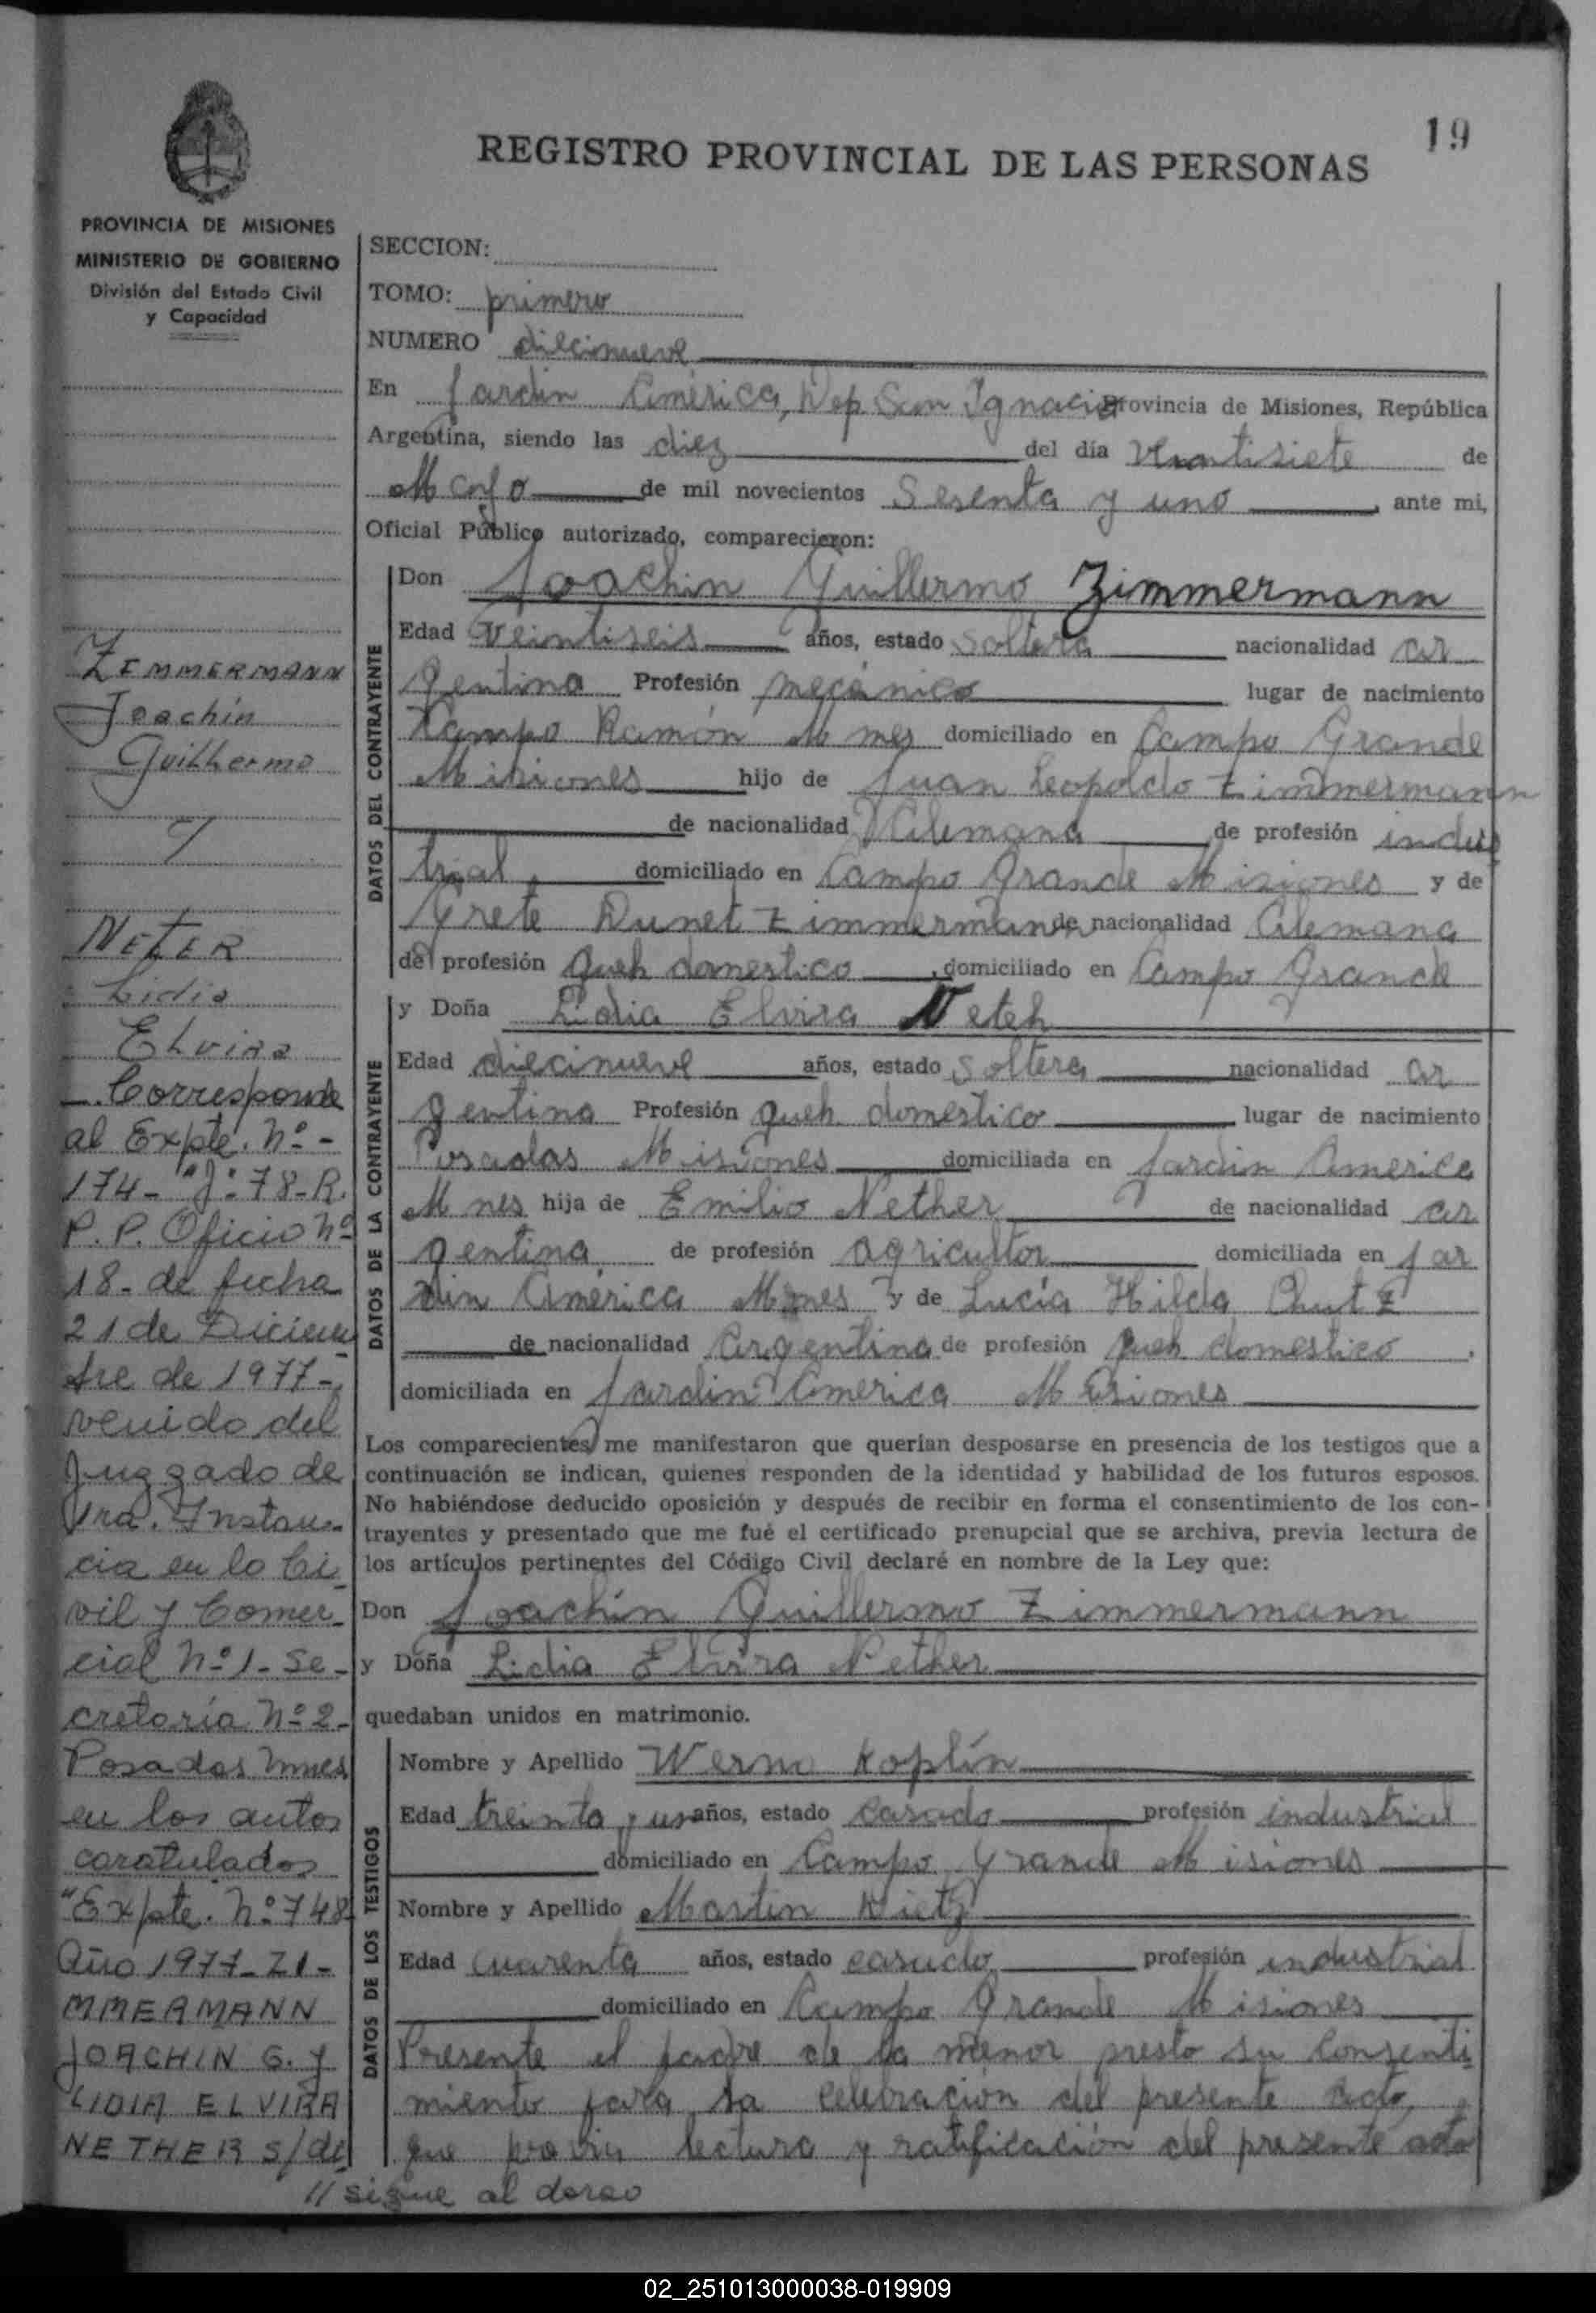 19
REGISTRO PROVINCIAL DE LAS PERSONAS
PROVINCIA DE MISIONES
MINISTERIO DE GOBIERNO
División del Estado Civil
y Capacidad
ZIMMERMANN
Joachin
Guilhermo
y
NETER
Lidia
Elvira
Corresponde
al Expte. Nº -
174- "J" 78-R.
P.P. Oficio Nº
18- de fecha
21 de Diciem
bre de 1977-
venido del
Juzgado de
1ra. Instan-
cia en lo Ci-
vil y Comer-
cial Nº 1- Se-
cretaría Nº 2-
Posadas Mnes
en los autos
caratulados
"Expte. Nº 748
Año 1977- ZI-
MMERMANN
JOACHIN G. y
LIDIA ELVIRA
NETHER S/di
// sigue al dorso
SECCION:
TOMO: primero
NUMERO diecinueve
En Jardin América, Dep San Ignacio Provincia de Misiones, República
Argentina, siendo las diez del día veintisiete de
Mayo de mil novecientos Sesenta y uno, ante mi,
Oficial Público autorizado, comparecieron:
DATOS DEL CONTRAYENTE
Don Joachin Guillermo Zimmermann
Edad Veintiseis años, estado Soltero nacionalidad ar
gentina Profesión mecánico lugar de nacimiento
Campo Ramón Mnes domiciliado en Campo Grande
Misiones hijo de Juan Leopoldo Zimmermann
de nacionalidad Alemana de profesión indus
trial domiciliado en Campo Grande Misiones y de
Grete Dunet Zimmermann de nacionalidad Alemana
de profesión queh domestico, domiciliado en Campo Grande
DATOS DE LA CONTRAYENTE
y Doña Lidia Elvira Neteh
Edad diecinueve años, estado Soltera nacionalidad ar
gentina Profesión queh. domestico lugar de nacimiento
Posadas Misiones domiciliada en Jardin America
Mnes hija de Emilio Nether de nacionalidad ar
gentina de profesión agricultor domiciliada en Jar
din América Mnes y de Lucía Hilda Chutz
de nacionalidad Argentina de profesión queh domestico,
domiciliada en Jardin America Misiones
Los comparecientes me manifestaron que querían desposarse en presencia de los testigos que a
continuación se indican, quienes responden de la identidad y habilidad de los futuros esposos.
No habiéndose deducido oposición y después de recibir en forma el consentimiento de los con-
trayentes y presentado que me fué el certificado prenupcial que se archiva, previa lectura de
los artículos pertinentes del Código Civil declaré en nombre de la Ley que:
Don Joachín Guillermo Zimmermann
y Doña Lidia Elvira Nether
quedaban unidos en matrimonio.
DATOS DE LOS TESTIGOS
Nombre y Apellido Werno Koplín
Edad treinta y un años, estado casado profesión industrial
domiciliado en Campo Grande Misiones
Nombre y Apellido Martin Dietz
Edad cuarenta años, estado casado profesión industrial
domiciliado en Campo Grande Misiones
Presente el padre de la menor presto su Consenti
miento para la celebración del presente acto,
que previa lectura y ratificación del presente acta
02_251013000038-019909